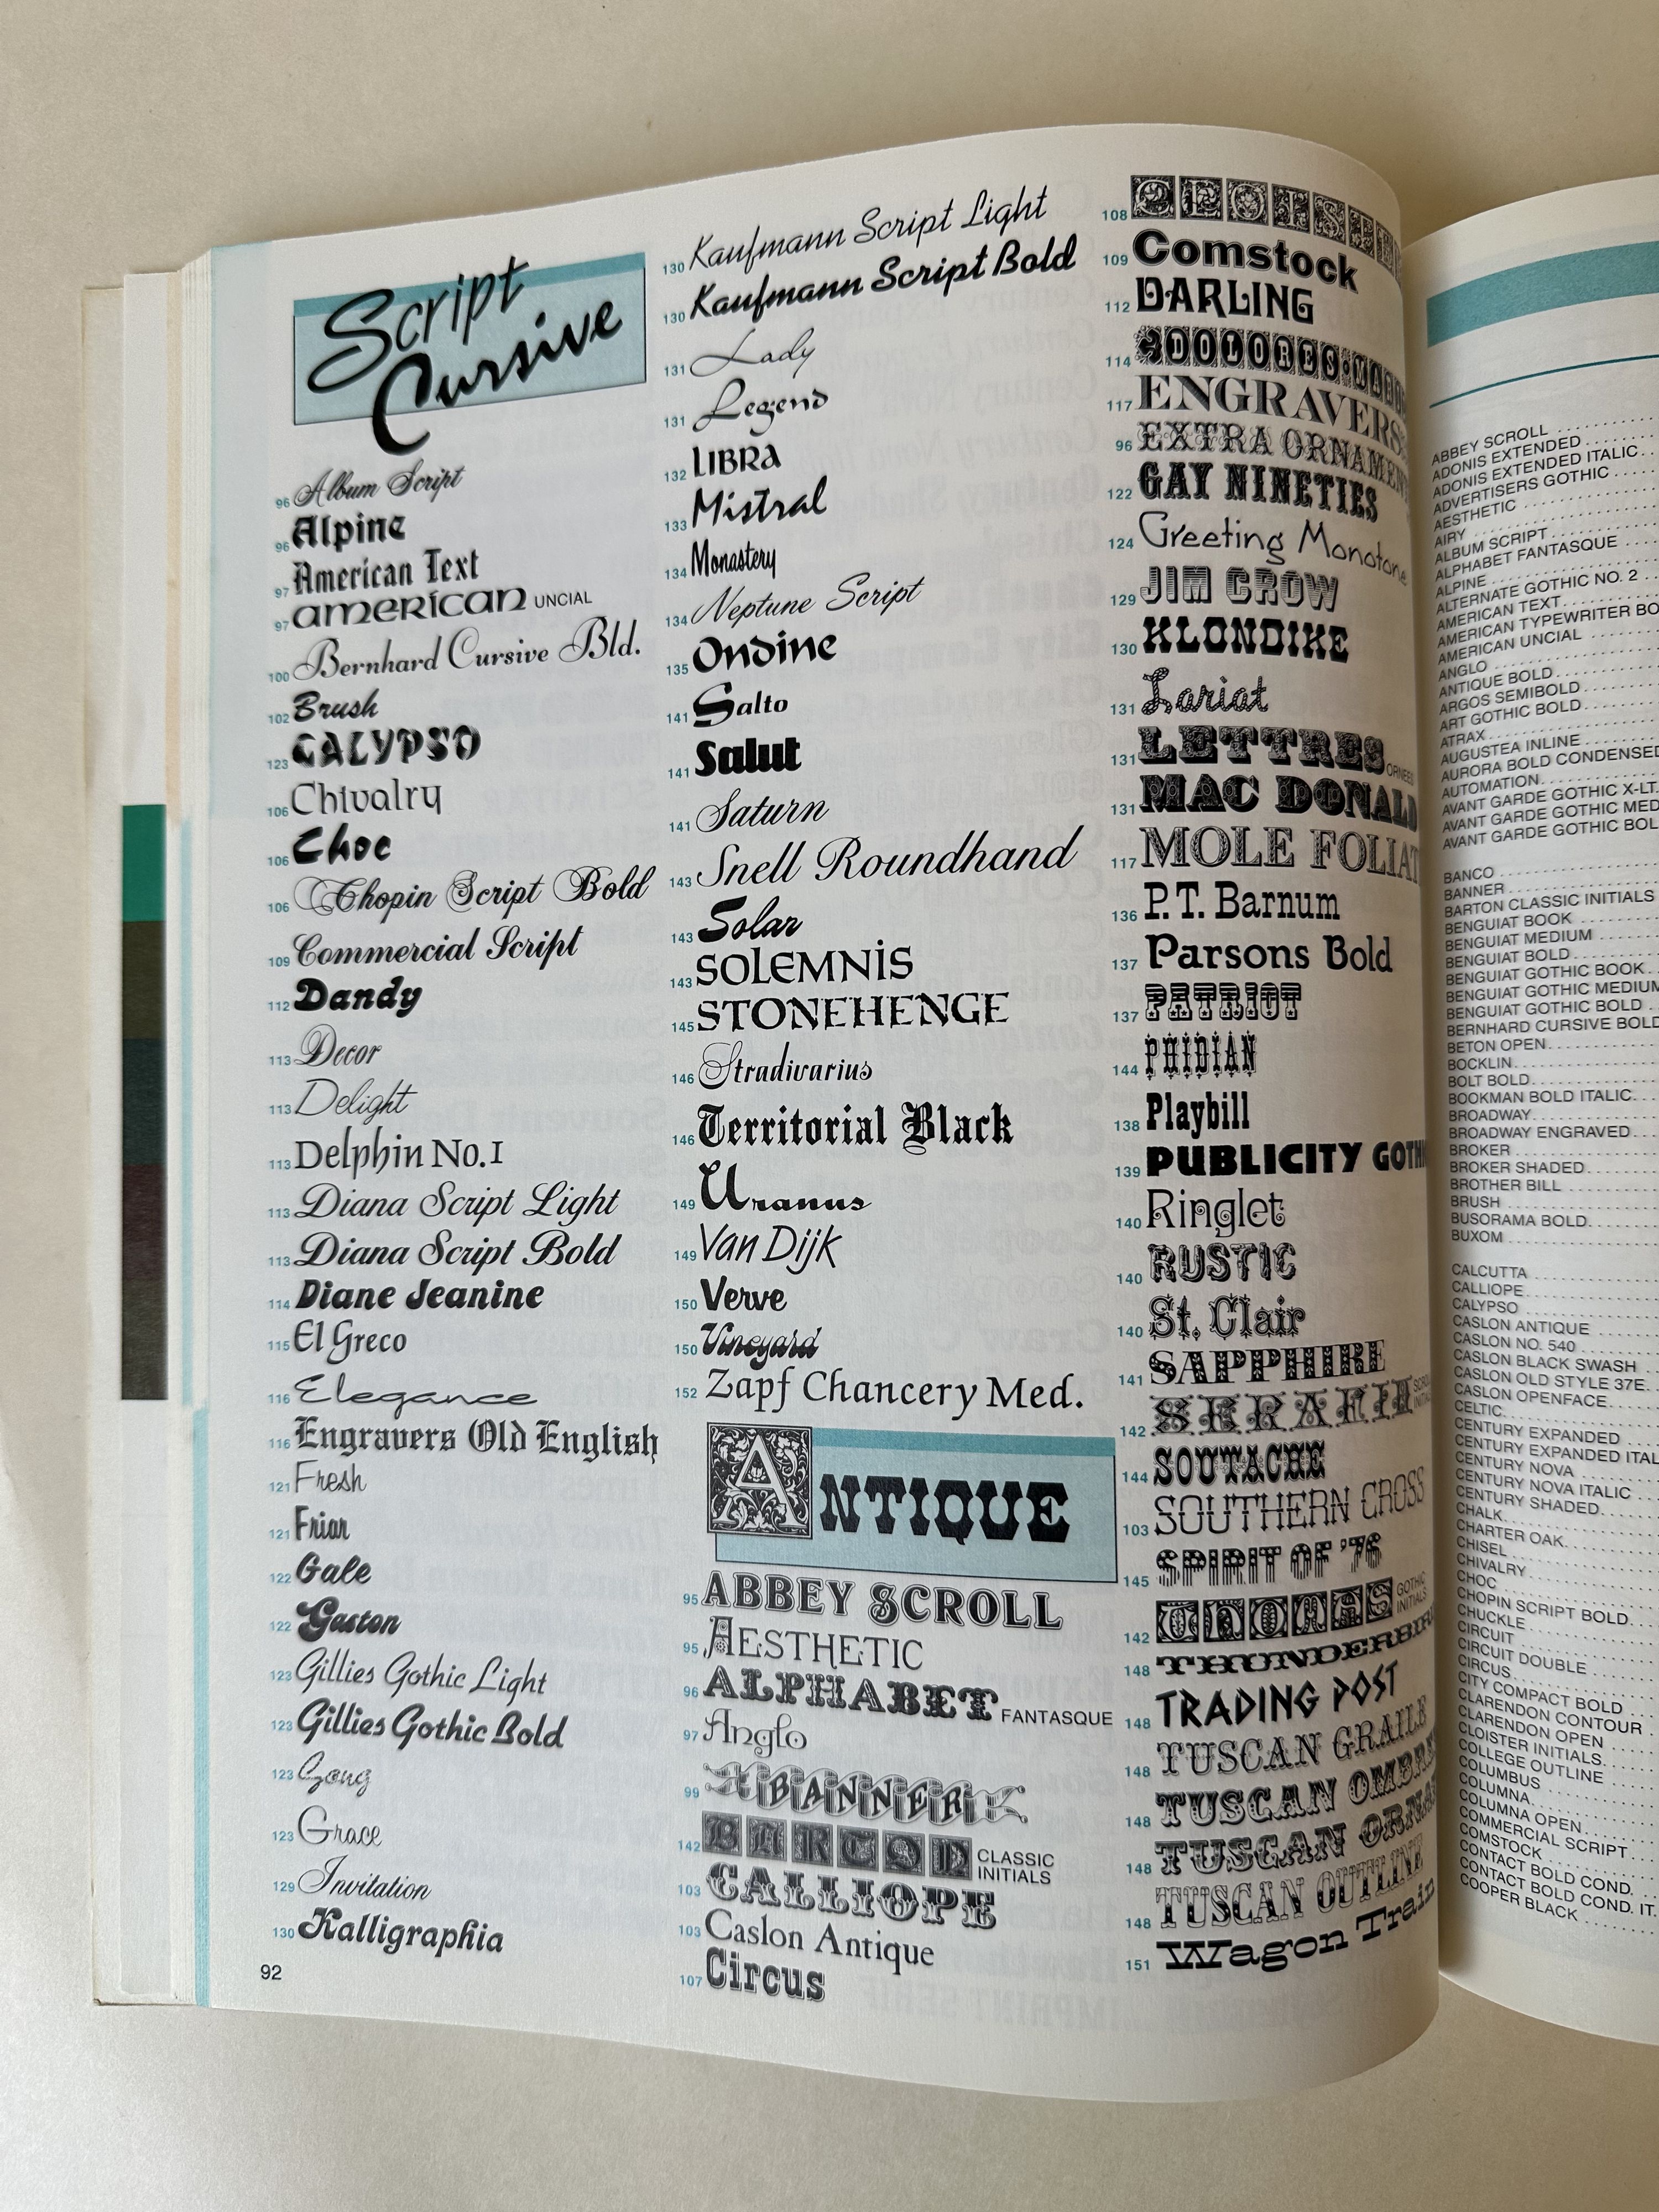 Script
Cursive
96 Album Script
96 Alpine
97 American Text
97 american UNCIAL
100 Bernhard Cursive Bld.
102 Brush
123 CALYPSO
106 Chivalry
106 Choc
106 Chopin Script Bold
109 Commercial Script
112 Dandy
113 Decor
113 Delight
113 Delphin No.1
113 Diana Script Light
113 Diana Script Bold
114 Diane Jeanine
115 El Greco
116 Elegance
116 Engravers Old English
121 Fresh
121 Friar
122 Gale
122 Gaston
123 Gillies Gothic Light
123 Gillies Gothic Bold
123 Gong
123 Grace
129 Invitation
130 Kalligraphia
92
130 Kaufmann Script Light
130 Kaufmann Script Bold
131 Lady
131 Legend
132 LIBRA
133 Mistral
134 Monastery
134 Neptune Script
135 Ondine
141 Salto
141 Salut
141 Saturn
143 Snell Roundhand
143 Solar
143 SOLEMNIS
145 STONEHENGE
146 Stradivarius
146 Territorial Black
149 Uranus
149 Van Dijk
150 Verve
150 Vineyard
152 Zapf Chancery Med.
ANTIQUE
95 ABBEY SCROLL
95 AESTHETIC
96 ALPHABET FANTASQUE
97 Anglo
99 BANNER
142 BARTON CLASSIC INITIALS
103 CALLIOPE
103 Caslon Antique
107 Circus
108
109 Comstock
112 DARLING
114 DOLORES
117 ENGRAVERS
96 EXTRA ORNAMEN
122 GAY NINETIES
124 Greeting Monotone
129 JIM CROW
130 KLONDIKE
131 Lariat
131 LETTRES ORNEES
131 MAC DONALD
117 MOLE FOLIAT
136 P. T. Barnum
137 Parsons Bold
137 PATRIOT
144 PHIDIAN
138 Playbill
139 PUBLICITY GOTH
140 Ringlet
140 RUSTIC
140 St. Clair
141 SAPPHIRE
142 SERAFIN
144 SOUTACHE
103 SOUTHERN CROSS
145 SPIRIT OF '76
142 THOMAS GOTHIC INITIALS
148 THUNDERBIR
148 TRADING POST
148 TUSCAN GRAILE
148 TUSCAN OMBRE
148 TUSCAN ORNA
148 TUSCAN OUTLINE
151 Wagon Train
ABBEY SCROLL
ADONIS EXTENDED
ADONIS EXTENDED ITALIC
ADVERTISERS GOTHIC
AESTHETIC
AIRY
ALBUM SCRIPT
ALPHABET FANTASQUE
ALPINE
ALTERNATE GOTHIC NO. 2
AMERICAN TEXT
AMERICAN TYPEWRITER BO
AMERICAN UNCIAL
ANGLO
ANTIQUE BOLD
ARGOS SEMIBOLD
ART GOTHIC BOLD
ATRAX
AUGUSTEA INLINE
AURORA BOLD CONDENSED
AUTOMATION
AVANT GARDE GOTHIC X-LT.
AVANT GARDE GOTHIC MED
AVANT GARDE GOTHIC BOL
BANCO
BANNER
BARTON CLASSIC INITIALS
BENGUIAT BOOK
BENGUIAT MEDIUM
BENGUIAT BOLD
BENGUIAT GOTHIC BOOK
BENGUIAT GOTHIC MEDIUM
BENGUIAT GOTHIC BOLD
BERNHARD CURSIVE BOLD
BETON OPEN
BOCKLIN
BOLT BOLD
BOOKMAN BOLD ITALIC
BROADWAY
BROADWAY ENGRAVED
BROKER
BROKER SHADED
BROTHER BILL
BRUSH
BUSORAMA BOLD
BUXOM
CALCUTTA
CALLIOPE
CALYPSO
CASLON ANTIQUE
CASLON NO. 540
CASLON BLACK SWASH
CASLON OLD STYLE 37E
CASLON OPENFACE
CELTIC
CENTURY EXPANDED
CENTURY EXPANDED ITAL
CENTURY NOVA
CENTURY NOVA ITALIC
CENTURY SHADED
CHALK
CHARTER OAK
CHISEL
CHIVALRY
CHOC
CHOPIN SCRIPT BOLD
CHUCKLE
CIRCUIT
CIRCUIT DOUBLE
CIRCUS
CITY COMPACT BOLD
CLARENDON CONTOUR
CLARENDON OPEN
CLOISTER INITIALS
COLLEGE OUTLINE
COLUMBUS
COLUMNA
COLUMNA OPEN
COMMERCIAL SCRIPT
COMSTOCK
CONTACT BOLD COND.
CONTACT BOLD COND. IT.
COOPER BLACK